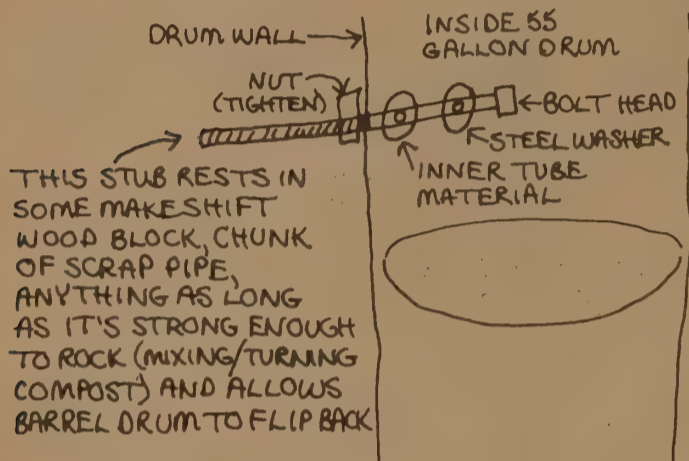 DRUM WALL
INSIDE 55
GALLON DRUM
NUT
(TIGHTEN)
BOLT HEAD
STEEL WASHER
INNER TUBE
MATERIAL
THIS STUB RESTS IN
SOME MAKESHIFT
WOOD BLOCK, CHUNK
OF SCRAP PIPE,
ANYTHING AS LONG
AS IT'S STRONG ENOUGH
TO ROCK (MIXING/TURNING
COMPOST) AND ALLOWS
BARREL DRUM TO FLIP BACK